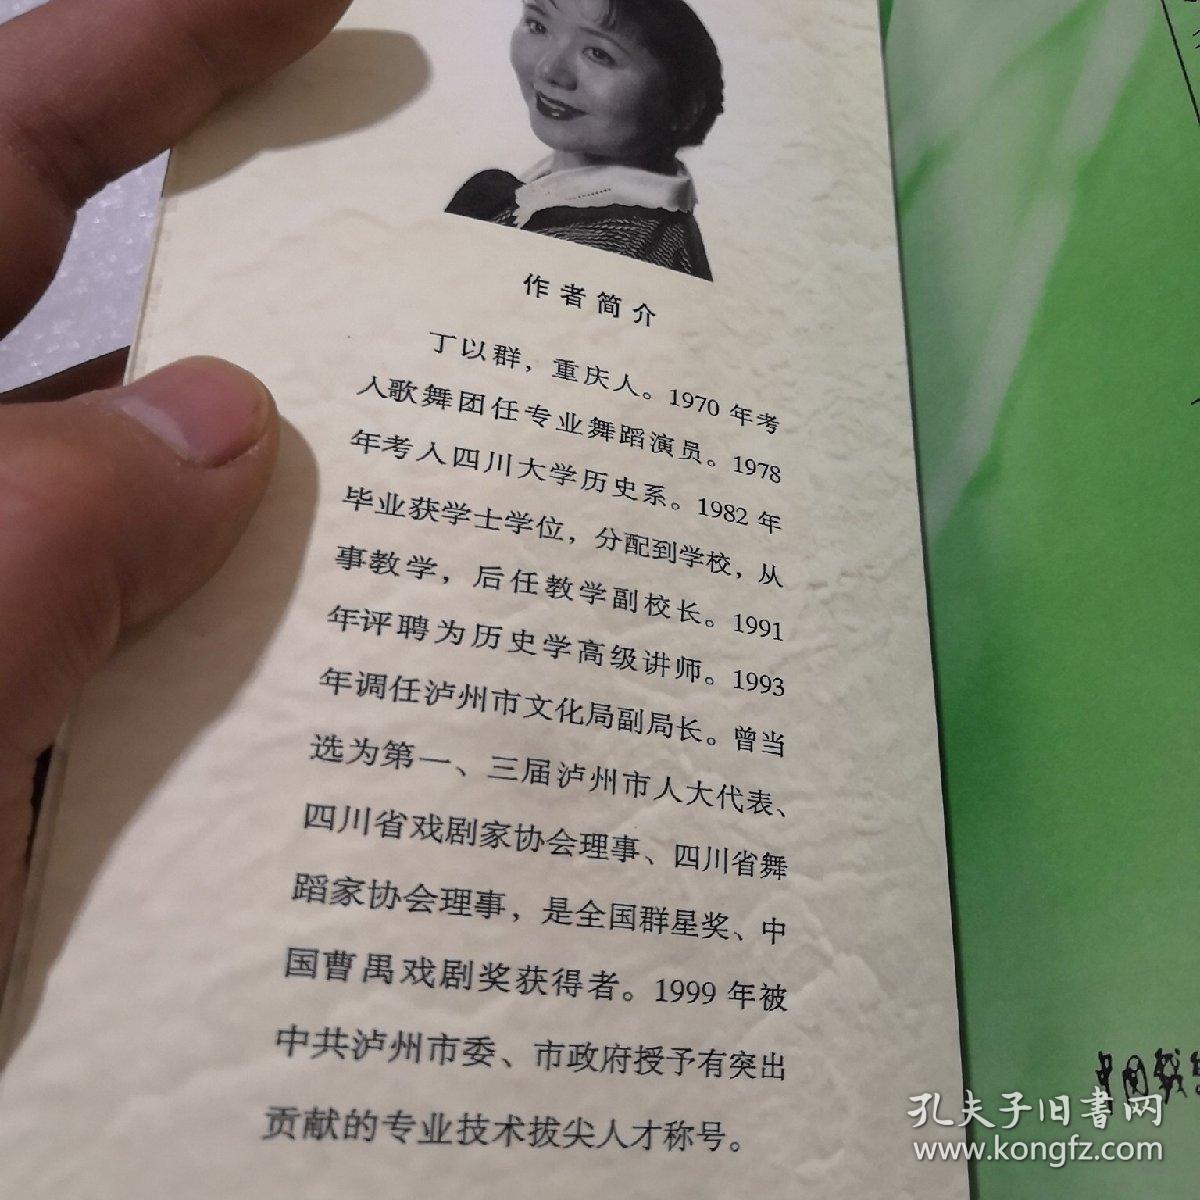 作者简介
丁以群，重庆人。1970 年考
入歌舞团任专业舞蹈演员。1978
年考入四川大学历史系。1982 年
毕业获学士学位，分配到学校，从
事教学，后任教学副校长。1991
年评聘为历史学高级讲师。1993
年调任泸州市文化局副局长。曾当
选为第一、三届泸州市人大代表、
四川省戏剧家协会理事、四川省舞
蹈家协会理事，是全国群星奖、中
国曹禺戏剧奖获得者。1999 年被
中共泸州市委、市政府授予有突出
贡献的专业技术拔尖人才称号。
中国
孔夫子旧书网
www.kongfz.com